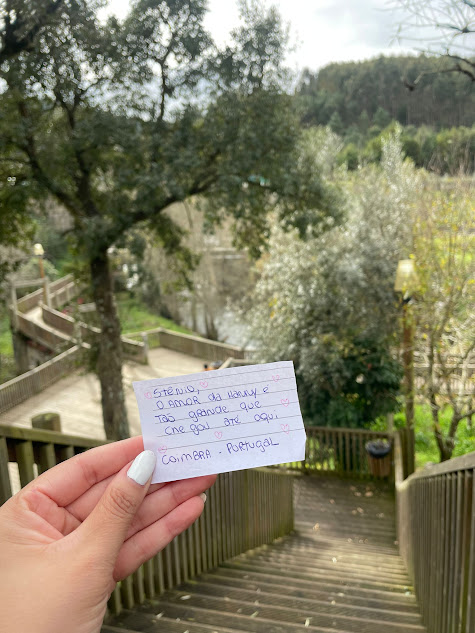 Stênio,
O AMOR da Hanny é
Tão grande que
chegou até aqui
COIMBRA - PORTUGAL